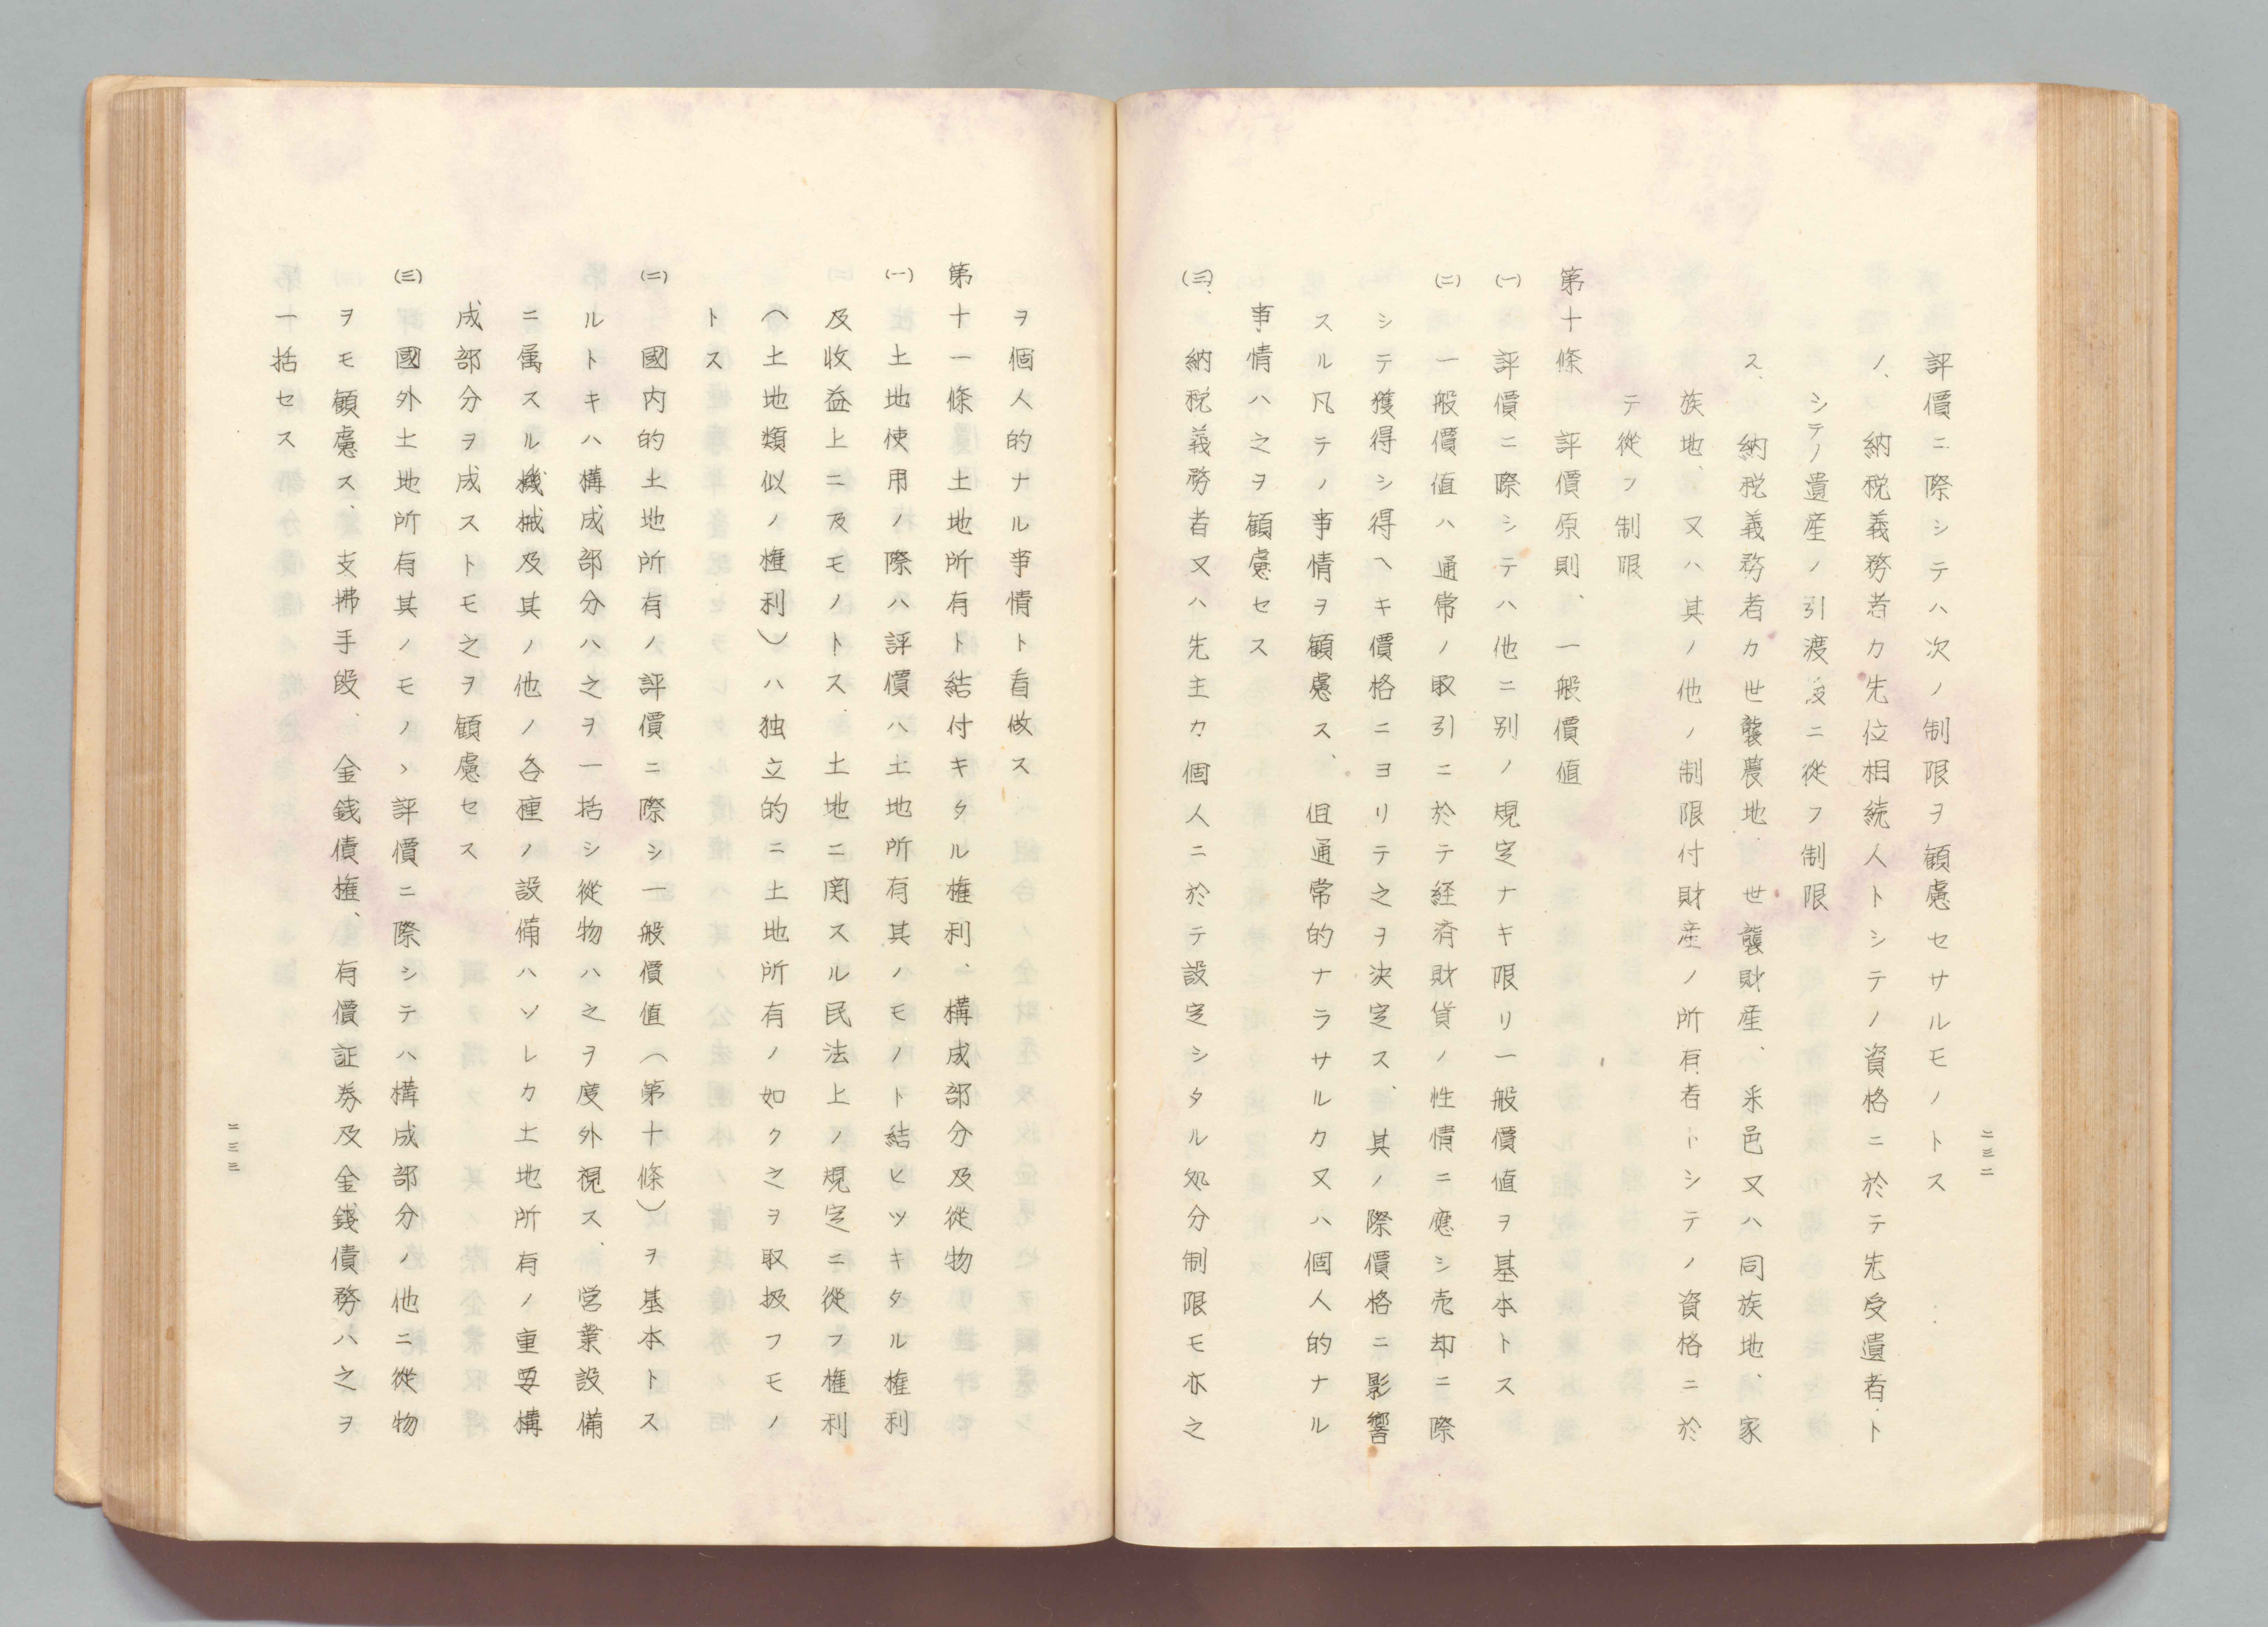 二三二
評價ニ際シテハ次ノ制限ヲ顧慮セサルモノトス
ノ、納税義務者カ先位相続人トシテノ資格ニ於テ先受遺者ト
シテノ遺産ノ引渡及ニ從フ制限
ス、納税義務者カ世襲農地、世襲財産、釆邑又ハ同族地、家
族地、又ハ其ノ他ノ制限付財産ノ所有者トシテノ資格ニ於
テ從フ制限
第十條 評價原則、一般價値
(一) 評價ニ際シテハ他ニ別ノ規定ナキ限リ一般價値ヲ基本トス
(二) 一般價値ハ通常ノ取引ニ於テ経済財貨ノ性情ニ應シ売却ニ際
シテ獲得シ得ヘキ價格ニヨリテ之ヲ決定ス、其ノ際價格ニ影響
スル凡テノ事情ヲ顧慮ス、但通常的ナラサルカ又ハ個人的ナル
事情ハ之ヲ顧慮セス
(三)、納税義務者又ハ先主カ個人ニ於テ設定シタル処分制限モ亦之
ヲ個人的ナル事情ト看做ス
第十一條 土地所有ト結付キタル権利、構成部分及從物
(一) 土地使用ノ際ハ評價ハ土地所有其ノモノト結ヒツキタル権利
及收益上ニ及モノトス、土地ニ関スル民法上ノ規定ニ從フ権利
(土地類似ノ権利)ハ独立的ニ土地所有ノ如ク之ヲ取扱フモノ
トス
(二) 國内的土地所有ノ評價ニ際シ一般價値(第十條)ヲ基本トス
ルトキハ構成部分ハ之ヲ一括シ從物ハ之ヲ度外視ス、営業設備
ニ属スル機械及其ノ他ノ各種ノ設備ハソレカ土地所有ノ重要構
成部分ヲ成ストモ之ヲ顧慮セス
(三) 國外土地所有其ノモノヽ評價ニ際シテハ構成部分ノ他ニ從物
ヲモ顧慮ス、支拂手段、金銭債権、有價証券及金銭債務ハ之ヲ
一括セス
二三三